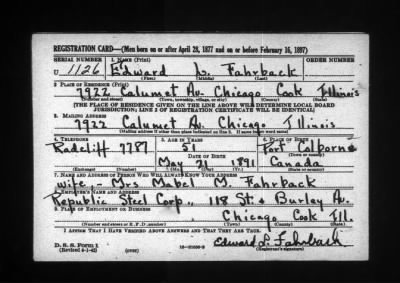 REGISTRATION CARD—(Men born on or after April 28, 1877 and on or before February 16, 1897)
SERIAL NUMBER 1. NAME (Print) ORDER NUMBER
U 1126 Edward L. Fahrback
(First) (Middle) (Last)
2. PLACE OF RESIDENCE (Print)
7922 Calumet Av. Chicago Cook Illinois
(Number and street) (Town, township, village, or city) (County) (State)
[THE PLACE OF RESIDENCE GIVEN ON THE LINE ABOVE WILL DETERMINE LOCAL BOARD
JURISDICTION; LINE 2 OF REGISTRATION CERTIFICATE WILL BE IDENTICAL]
3. MAILING ADDRESS
7922 Calumet Av. Chicago Illinois
(Mailing address if other than place indicated on line 2. If same insert word same)
4. TELEPHONE 5. AGE IN YEARS 6. PLACE OF BIRTH
Radcliff 7787 51 Port Colborne
DATE OF BIRTH (Town or county)
May 21 1891 Canada
(Exchange) (Number) (Mo.) (Day) (Yr.) (State or country)
7. NAME AND ADDRESS OF PERSON WHO WILL ALWAYS KNOW YOUR ADDRESS
wife, - Mrs Mabel M. Fahrback
8. EMPLOYER'S NAME AND ADDRESS
Republic Steel Corp., 118 St. & Burley Av.
9. PLACE OF EMPLOYMENT OR BUSINESS
Chicago Cook Ill.
(Number and street or R. F. D. number) (Town) (County) (State)
I AFFIRM THAT I HAVE VERIFIED ABOVE ANSWERS AND THAT THEY ARE TRUE.
D. S. S. Form 1
(Revised 4-1-42) (over) Edward L. Fahrbach
(Registrant's signature)